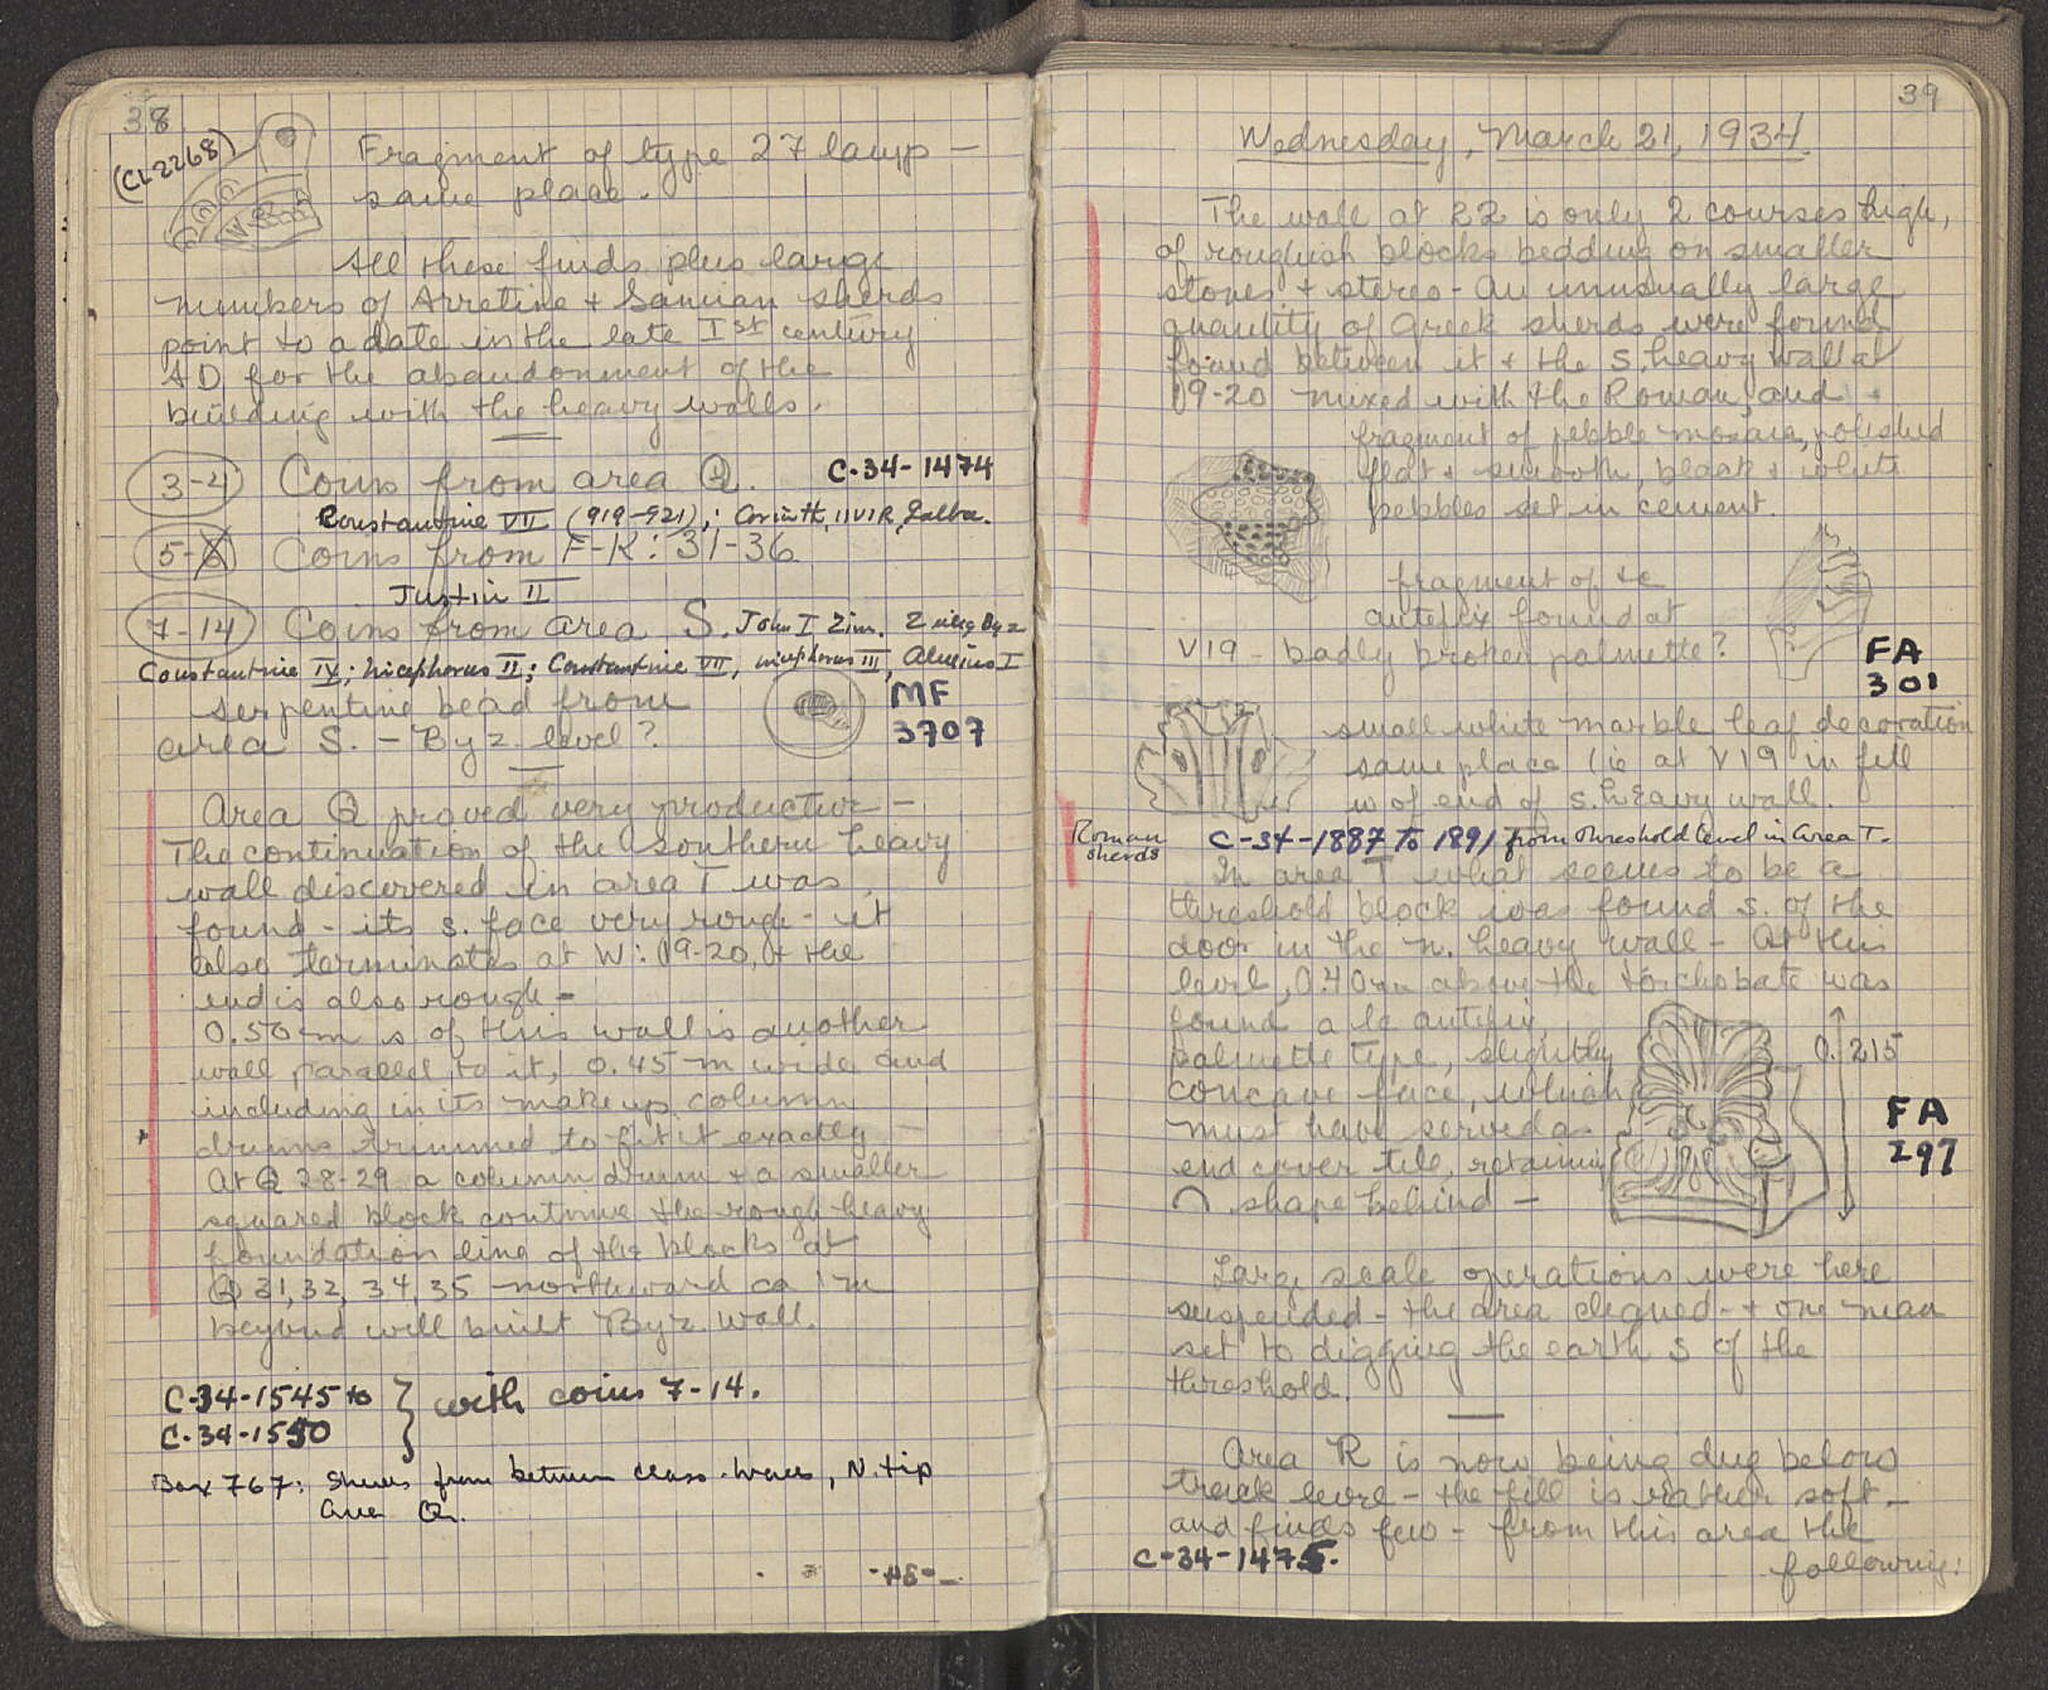 38
(CL 2268)
Fragment of type 27 lamp –
same place.
All these finds plus large
numbers of Arretine + Samian sherds
point to a date in the late Ist century
AD for the abandonment of the
building with the heavy walls.
3-4 Coins from area Q. C-34-1474
Constantine VII (919-921); Corinth, IIVIR, Galba.
5-6 Coins from F-K: 31-36
Justin II
7-14 Coins from area S. John I Zim. 2 illeg Byz
Constantine IX; Nicephorus II; Constantine VII, Nicephorus III, Alexius I
serpentine bead from MF
area S. – Byz level? 3707
Area Q proved very productive –
The continuation of the southern heavy
wall discovered in area T was
found – its s. face very rough – it
also terminates at W: 19-20, + the
end is also rough –
0.50 m s of this wall is another
wall parallel to it, 0.45 m wide and
including in its make up column
drums trimmed to fit it exactly –
At Q 28-29 a column drum + a smaller
squared block continue the rough heavy
foundation line of the blocks at
Q 31, 32, 34, 35 northward ca 1 m
beyond well built Byz wall.
C-34-1545 to
C-34-1550 } with coins 7-14.
Box 767: Sherds from between class. walls, N. tip
Area Q.
39
Wednesday, March 21, 1934
The wall at 22 is only 2 courses high,
of roughish blocks bedding on smaller
stones + stereo – An unusually large
quantity of Greek sherds were found
found between it + the s. heavy wall at
19-20 mixed with the Roman, and
fragment of pebble mosaic, polished
flat + smooth, black + white
pebbles set in cement.
fragment of tc
antefix found at
V19 – badly broken palmette? FA
301
small white marble leaf decoration
same place (ie at V19 in fill
w of end of s. heavy wall.
Roman
sherds
C-34-1887 to 1891 from threshold level in Area T.
In area T what seems to be a
threshold block was found s. of the
door in the n. heavy wall – At this
level, 0.40 m above the toichobate was
found a tc antefix,
palmette type, slightly 0.215
concave face, which
must have served as FA
end cover tile, retaining 297
∩ shape behind –
Large scale operations were here
suspended – the area cleaned – + one man
set to digging the earth S of the
threshold.
Area R is now being dug below
track level – the fill is rather soft –
and finds few – from this area the
C-34-1475. following: